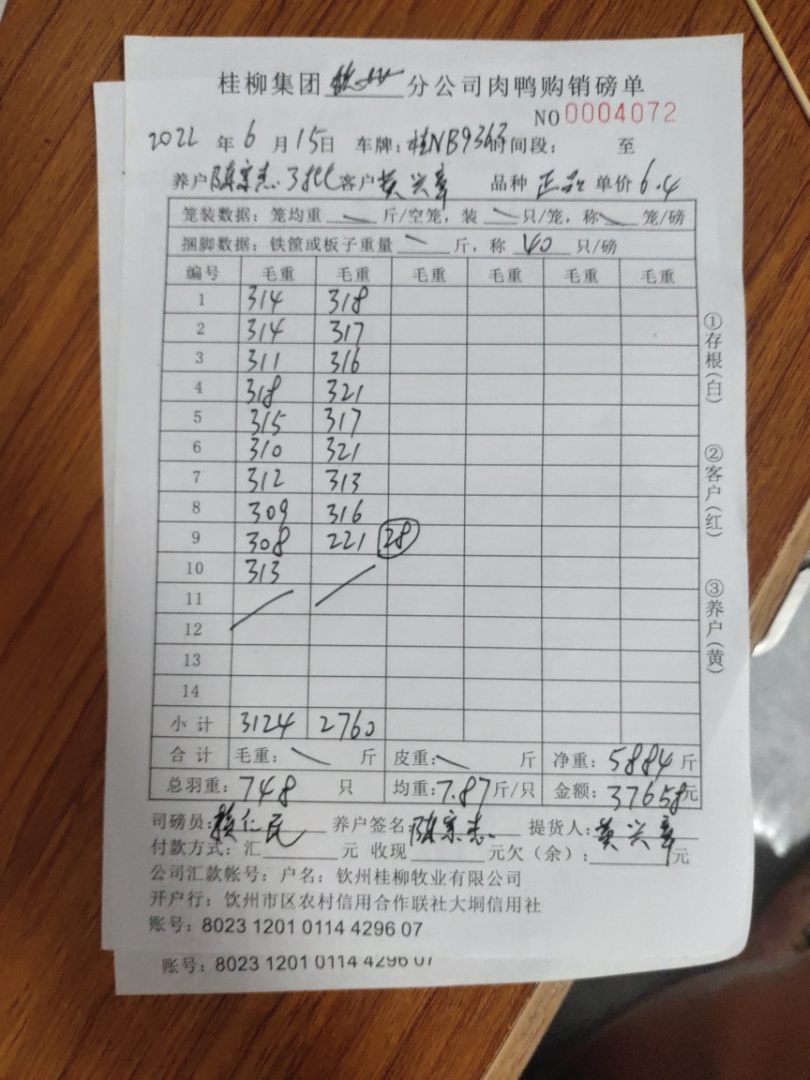 桂柳集团 钦州 分公司肉鸭购销磅单
NO 0004072
2022 年 6 月 15日 车牌: 桂NB9363 时间段: 至
养户 陈宗志 3批 客户 黄兴章 品种 正品 单价 6.4
笼装数据: 笼均重 斤/空笼, 装 只/笼, 称 笼/磅
捆脚数据: 铁筐或板子重量 斤, 称 40 只/磅
编号 毛重 毛重 毛重 毛重 毛重 毛重
1 314 318
2 314 317
3 311 316
4 318 321
5 315 317
6 310 321
7 312 313
8 309 316
9 308 221 28
10 313
11
12
13
14
小计 3124 2760
合计 毛重: 斤 皮重: 斤 净重: 5884 斤
总羽重: 748 只 均重: 7.87 斤/只 金额: 37658 元
司磅员: 赖仁民 养户签名: 陈宗志 提货人: 黄兴章
付款方式: 汇 元 收现 元欠(余): 元
公司汇款帐号: 户名: 钦州桂柳牧业有限公司
开户行: 饮州市区农村信用合作联社大垌信用社
账号: 8023 1201 0114 4296 07
账号: 8023 1201 0114 4296 07
①存根(白)
②客户(红)
③养户(黄)